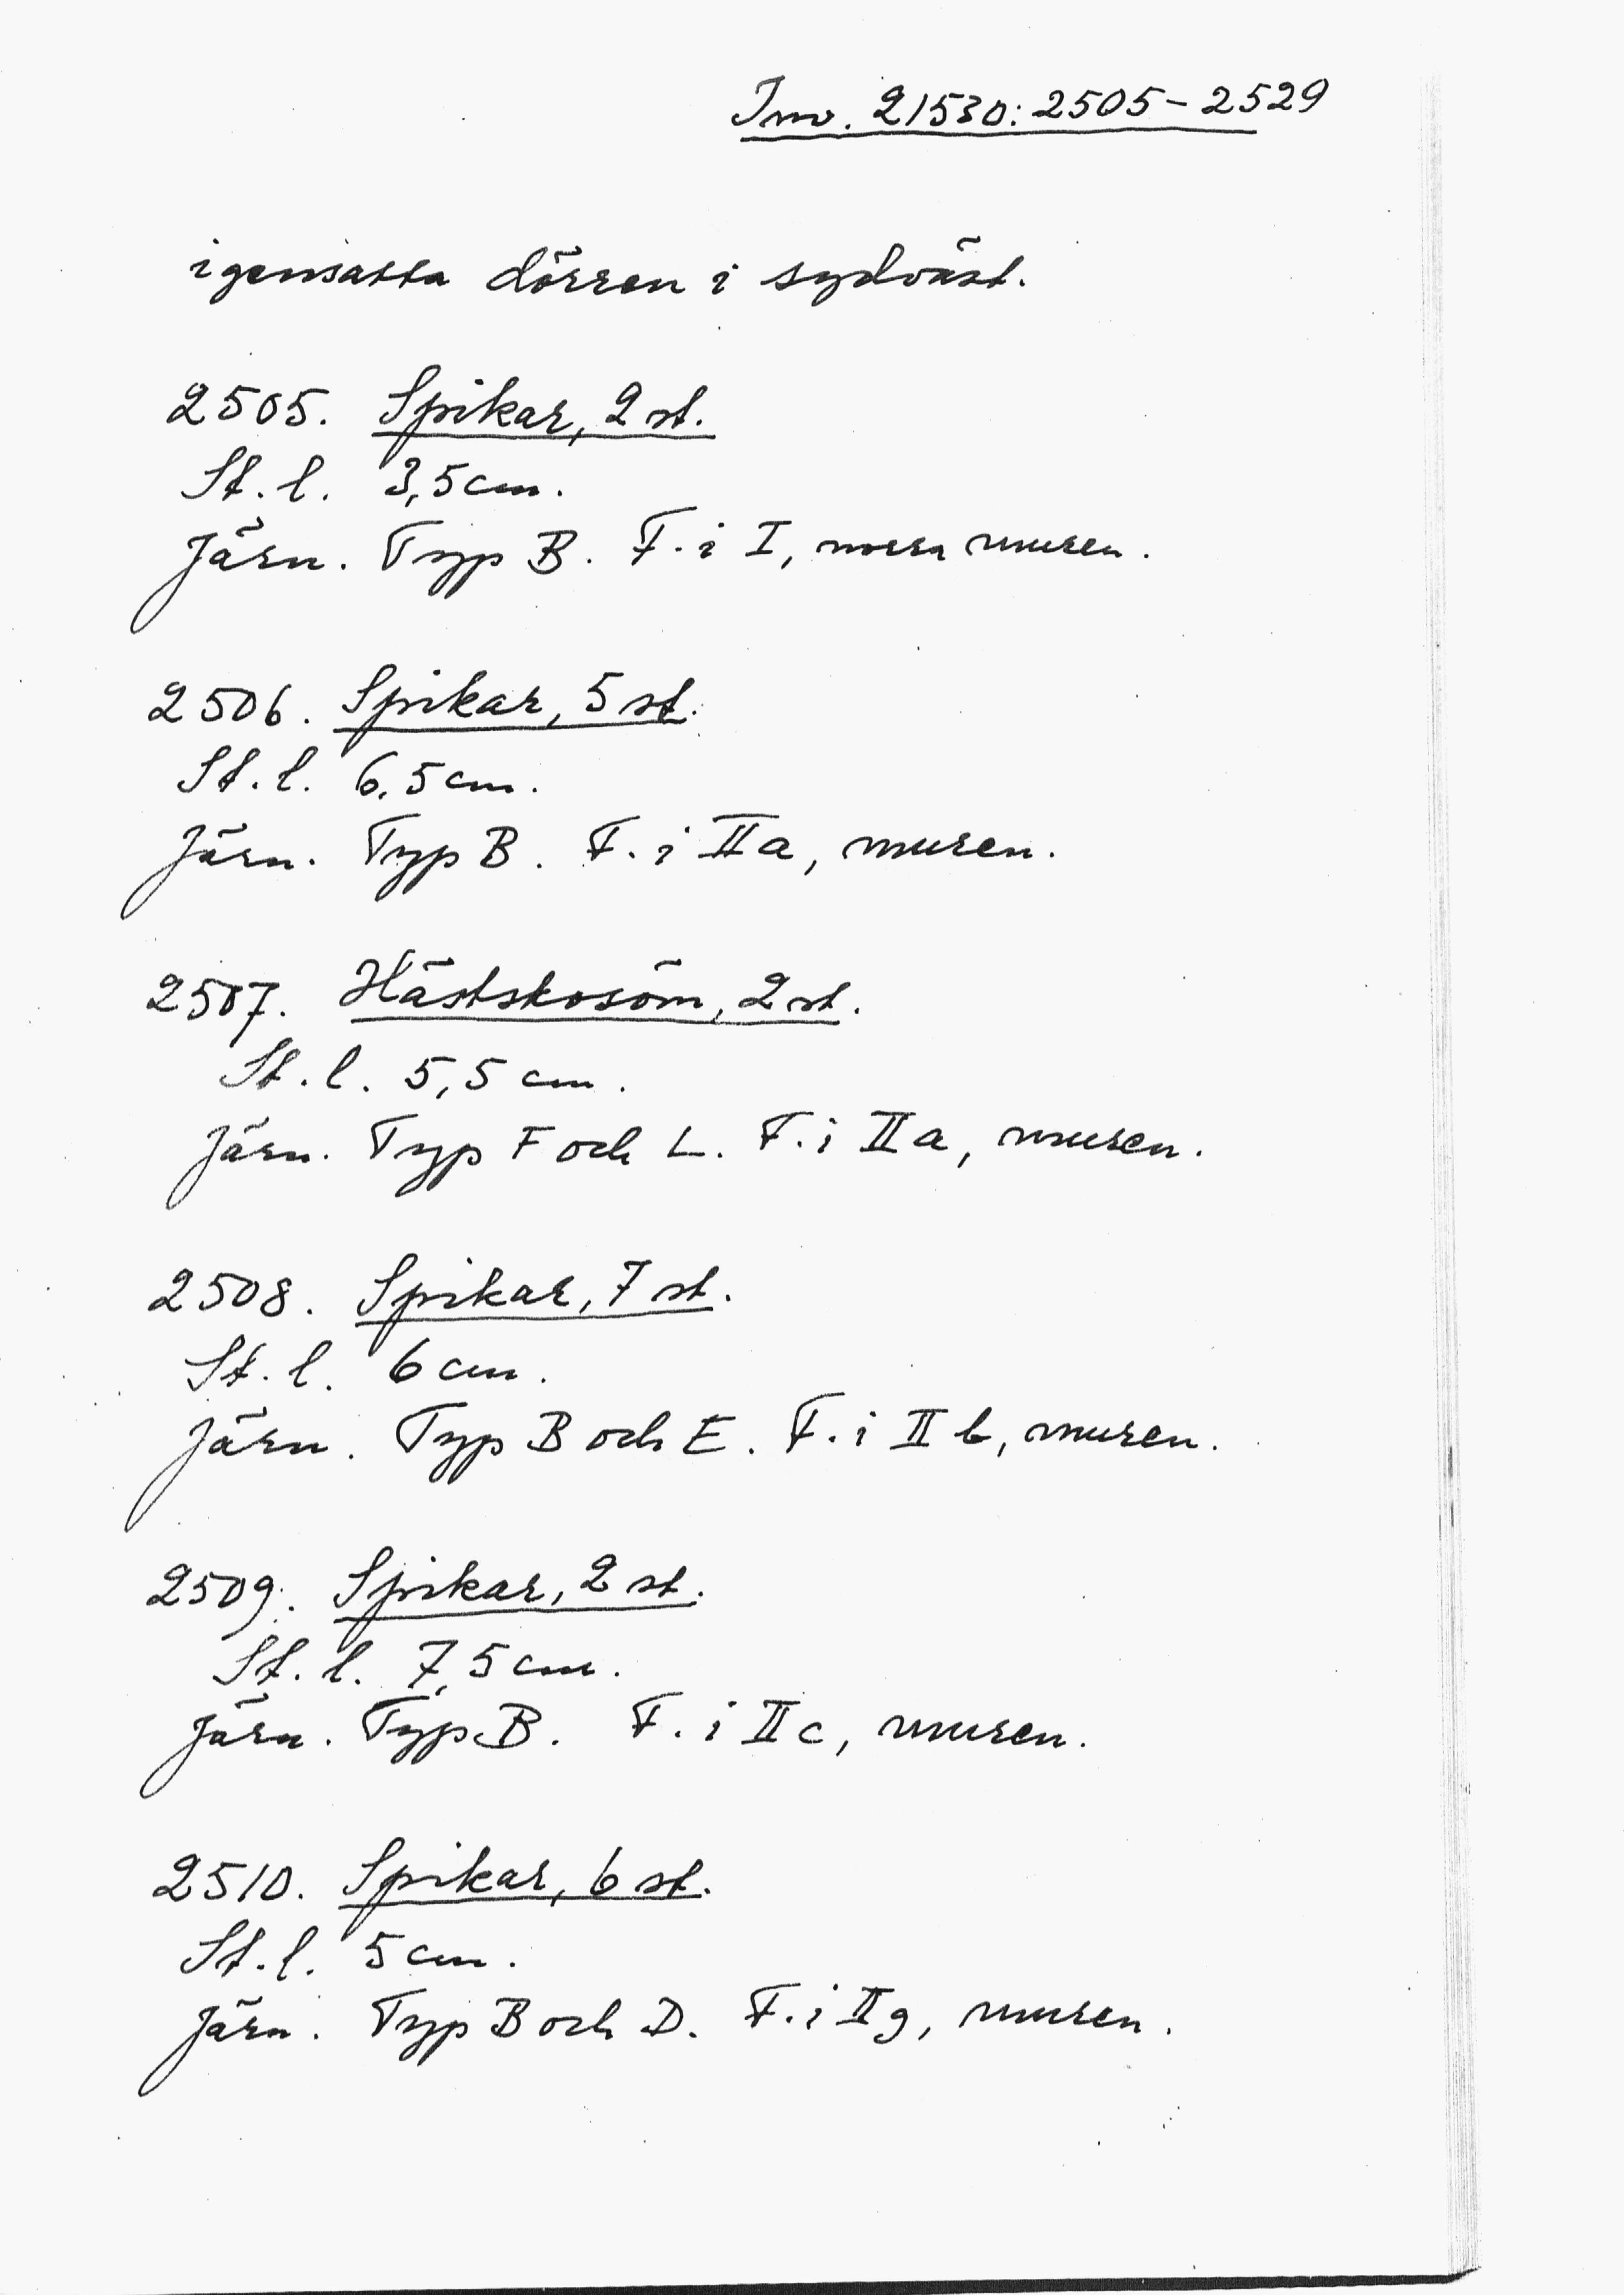 Inv. 21530:2505-2529
igensatta dörren i sydväst.
2505. Spikar, 2 st.
St. l. 3,5 cm.
Järn. Typ B. F. i I, norra muren.
2506. Spikar, 5 st.
St. l. 6,5 cm.
Järn. Typ B. F. i II a, muren.
2507. Hästskosöm, 2 st.
St. l. 5,5 cm.
Järn. Typ F och L. F. i II a, muren.
2508. Spikar, 7 st.
St. l. 6 cm.
Järn. Typ B och E. F. i II b, muren.
2509. Spikar, 2 st.
St. l. 7,5 cm.
Järn. Typ B. F. i II c, muren.
2510. Spikar, 6 st.
St. l. 5 cm.
Järn. Typ B och D. F. i II g, muren.